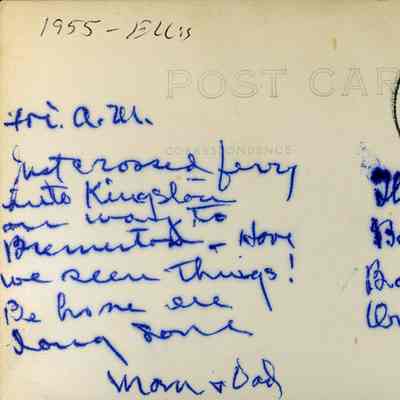 1955 - Ellis
POST CAR
Fri. A.M.
CORRESPONDENCE
Just crossed ferry
into Kingston
on way to
Bremerton - Have
we seen things!
Be home ere
long some
Mom & Dad